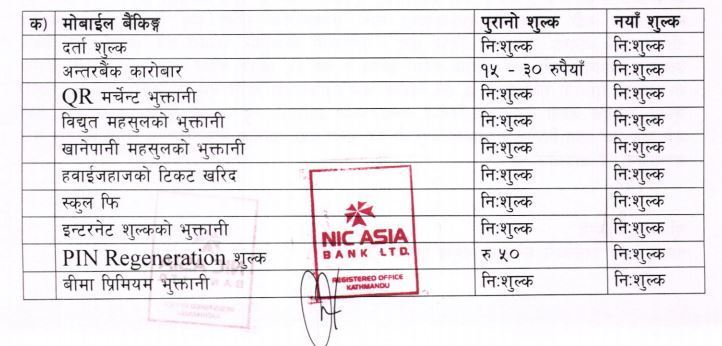 क) मोबाईल बैंकिङ्ग पुरानो शुल्क नयाँ शुल्क
दर्ता शुल्क नि:शुल्क नि:शुल्क
अन्तरबैंक कारोबार १५ - ३० रुपैयाँ नि:शुल्क
QR मर्चेन्ट भुक्तानी नि:शुल्क नि:शुल्क
विद्युत महसुलको भुक्तानी नि:शुल्क नि:शुल्क
खानेपानी महसुलको भुक्तानी नि:शुल्क नि:शुल्क
हवाईजहाजको टिकट खरिद नि:शुल्क नि:शुल्क
स्कुल फि नि:शुल्क नि:शुल्क
इन्टरनेट शुल्कको भुक्तानी नि:शुल्क नि:शुल्क
PIN Regeneration शुल्क रु ५० नि:शुल्क
बीमा प्रिमियम भुक्तानी नि:शुल्क नि:शुल्क
NIC ASIA
BANK LTD.
REGISTERED OFFICE
KATHMANDU